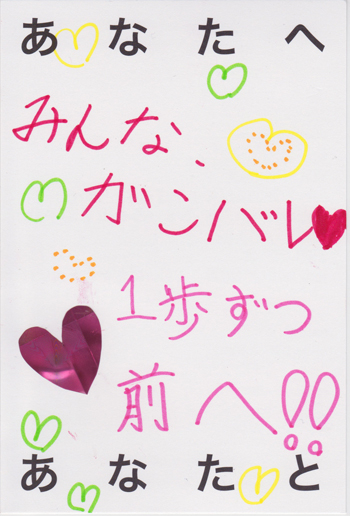 あなたへ
みんな、
ガンバレ
1歩ずつ
前へ!!
あなたと